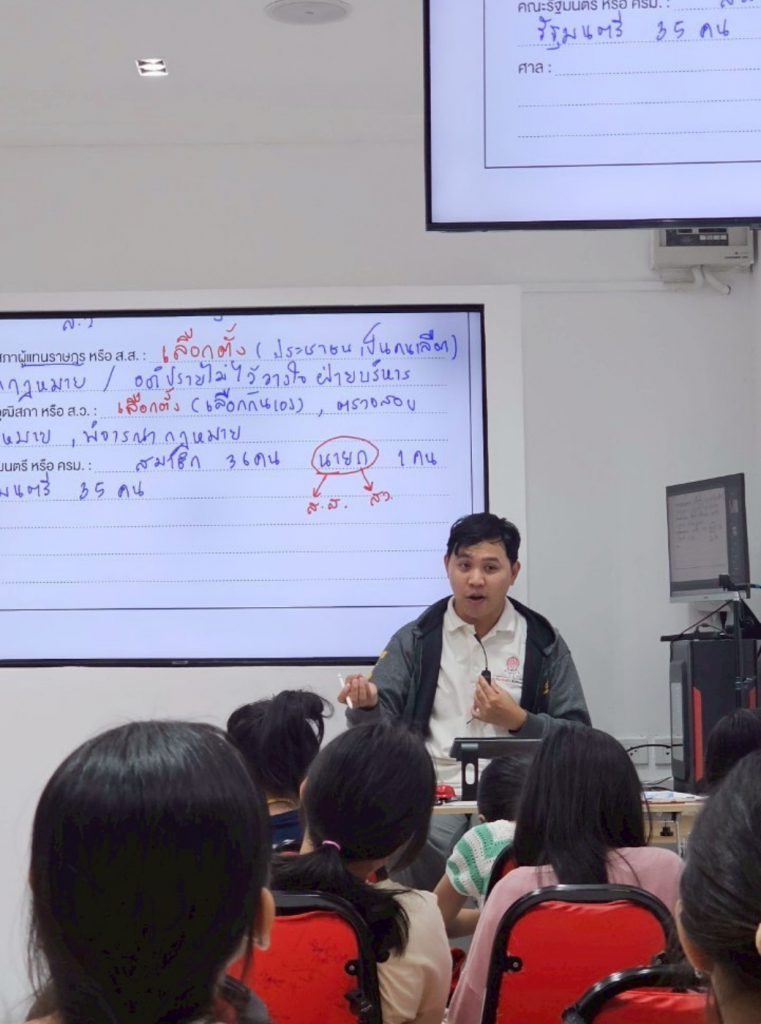 คณะรัฐมนตรี หรือ ครม. :
รัฐมนตรี 35 คน
ศาล :
สภาผู้แทนราษฎร หรือ ส.ส. : เลือกตั้ง (ประชาชนเป็นคนเลือก)
กฎหมาย / อภิปรายไม่ไว้วางใจ ฝ่ายบริหาร
วุฒิสภา หรือ ส.ว. : เลือกตั้ง (เลือกกันเอง), ตรวจสอบ
หมาย, พิจารณากฎหมาย
มนตรี หรือ ครม. : สมาชิก 36 คน นายก 1 คน
มนตรี 35 คน
ส.ส. สว.